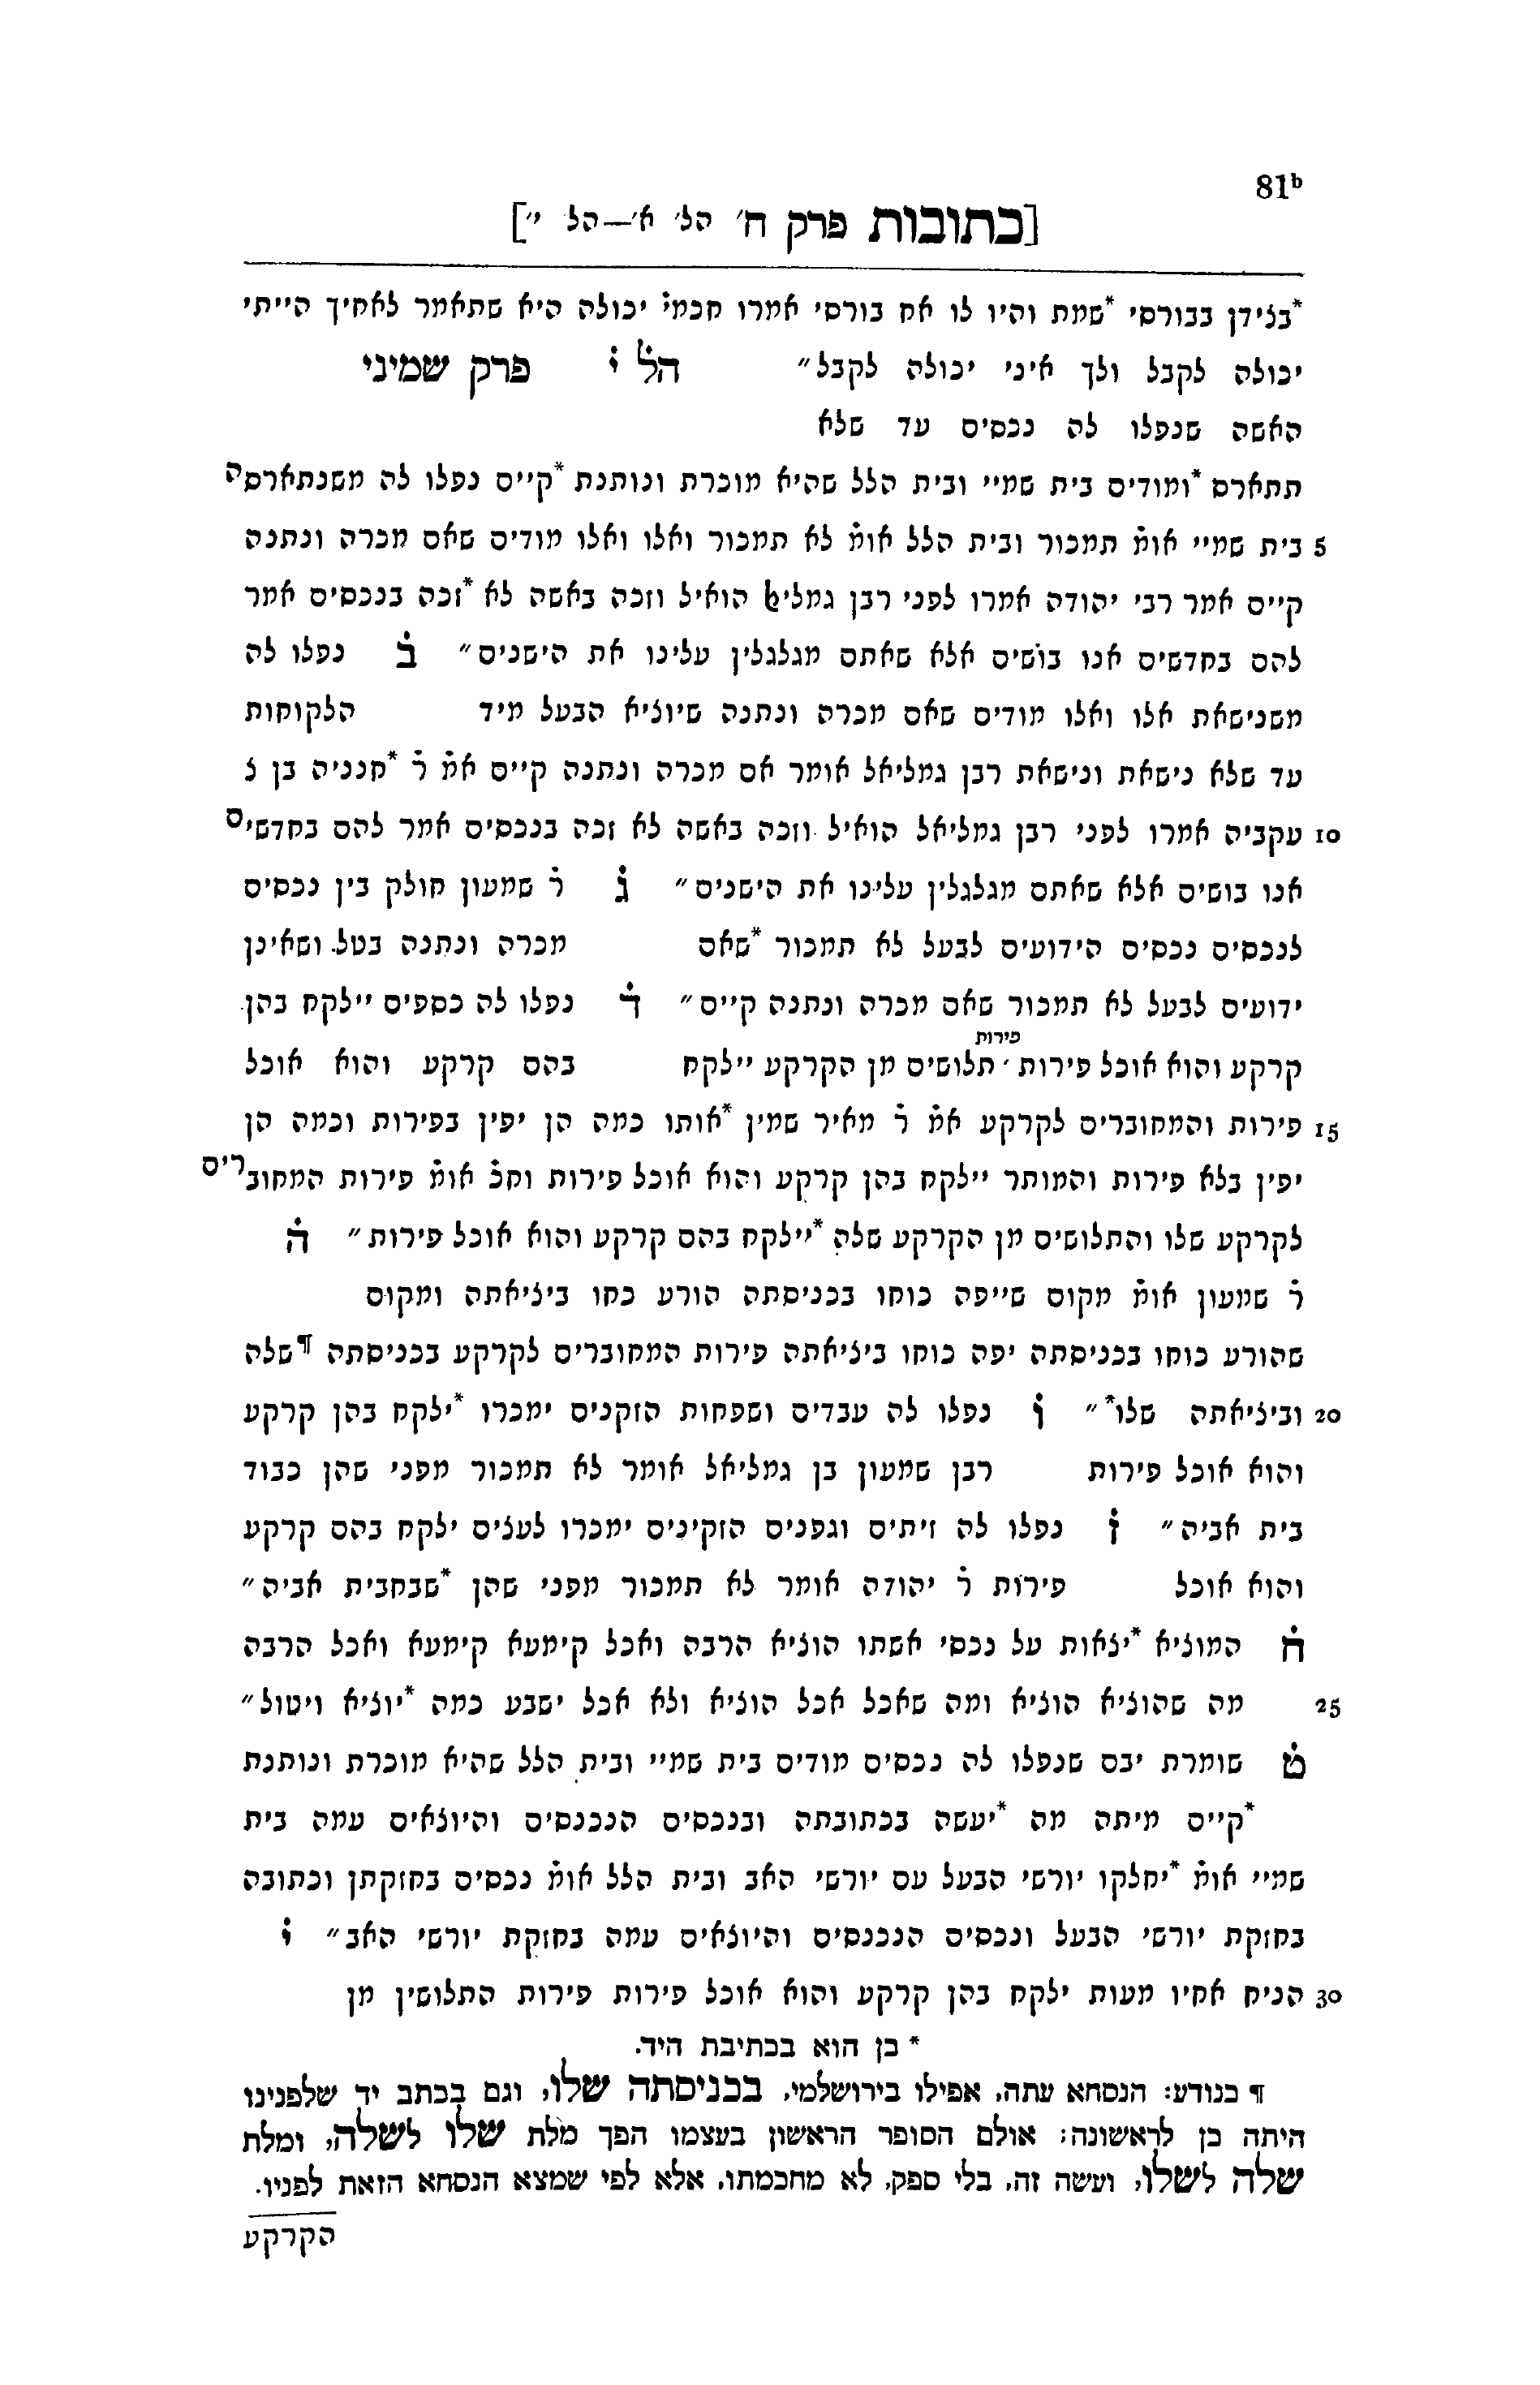 81ᵇ
[כתובות פרק ח׳ הל׳ א׳—הל י״]
*בצידן בבורסי *שמת והיו לו אח בורסי אמרו חכמי̇ יכולה היא שתאמר לאחיך הייתי
יכולה לקבל ולך איני יכולה לקבל״ הל י̇ פרק שמיני
האשה שנפלו לה נכסים עד שלא
תתארס *ומודים בית שמיי ובית הלל שהיא מוכרת ונותנת *קיים נפלו לה משנתארסה
5 בית שמיי אומ̇ תמכור ובית הלל אומ̇ לא תמכור ואלו ואלו מודים שאם מכרה ונתנה
קיים אמר רבי יהודה אמרו לפני רבן גמליﭏ הואיל וזכה באשה לא *זכה בנכסים אמר
להם בחדשים אנו בושים אלא שאתם מגלגלין עלינו את הישנים״ ב̇ נפלו לה
משנישאת אלו ואלו מודים שאם מכרה ונתנה שיוציא הבעל מיד הלקוחות
עד שלא נישאת ונישאת רבן גמליאל אומר אם מכרה ונתנה קיים אמ̇ ר̇ *חנניה בן צ
10 עקביה אמרו לפני רבן גמליאל הואיל וזכה באשה לא זכה בנכסים אמר להם בחדשים
אנו בושים אלא שאתם מגלגלין עלינו את הישנים״ ג̇ ר̇ שמעון חולק בין נכסים
לנכסים נכסים הידועים לבעל לא תמכור *שאם מכרה ונתנה בטל. ושאינן
ידועים לבעל לא תמכור שאם מכרה ונתנה קיים״ ד̇ נפלו לה כספים יילקח בהן
פירות
קרקע והוא אוכל פירות ׳ תלושים מן הקרקע יילקח בהם קרקע והוא אוכל
15 פירות והמחוברים לקרקע אמ̇ ר̇ מאיר שמין *אותו כמה הן יפין בפירות וכמה הן
יפין בלא פירות והמותר יילקח בהן קרקע והוא אוכל פירות וחכ̇ אומ̇ פירות המחוברים
לקרקע שלו והתלושים מן הקרקע שלה *יילקח בהם קרקע והוא אוכל פירות״ ה̇
ר̇ שמעון אומ̇ מקום שייפה כוחו בכניסתה הורע כחו ביציאתה ומקום
שהורע כוחו בכניסתה יפה כוחו ביציאתה פירות המחוברים לקרקע בכניסתה ¶שלה
20 וביציאתה שלו*״ ו̇ נפלו לה עבדים ושפחות הזקנים ימכרו *ילקח בהן קרקע
והוא אוכל פירות רבן שמעון בן גמליאל אומר לא תמכור מפני שהן כבוד
בית אביה״ ז̇ נפלו לה זיתים וגפנים הזקינים ימכרו לעצים ילקח בהם קרקע
והוא אוכל פירות ר̇ יהודה אומר לא תמכור מפני שהן *שבחבית אביה״
ח̇ המוציא *יצאות על נכסי אשתו הוציא הרבה ואכל קימעא קימעא ואכל הרבה
25 מה שהוציא הוציא ומה שאכל אכל הוציא ולא אכל ישבע כמה *יוציא ויטול״
ט̇ שומרת יבם שנפלו לה נכסים מודים בית שמיי ובית הלל שהיא מוכרת ונותנת
*קיים מיתה מה *יעשה בכתובתה ובנכסים הנכנסים והיוצאים עמה בית
שמיי אומ̇ *יחלקו יורשי הבעל עם יורשי האב ובית הלל אומ̇ נכסים בחזקתן וכתובה
בחזקת יורשי הבעל ונכסים הנכנסים והיוצאים עמה בחזקת יורשי האב״ י̇
30 הניח אחיו מעות ילקח בהן קרקע והוא אוכל פירות פירות התלושין מן
* כן הוא בכתיבת היד.
¶ כנודע: הנסחא עתה, אפילו בירושלמי, בכניסתה שלו, וגם בכתב יד שלפנינו
היתה כן לראשונה; אולם הסופר הראשון בעצמו הפך מלת שלו לשלה, ומלת
שלה לשלו, ועשה זה, בלי ספק, לא מחכמתו, אלא לפי שמצא הנסחא הזאת לפניו.
הקרקע